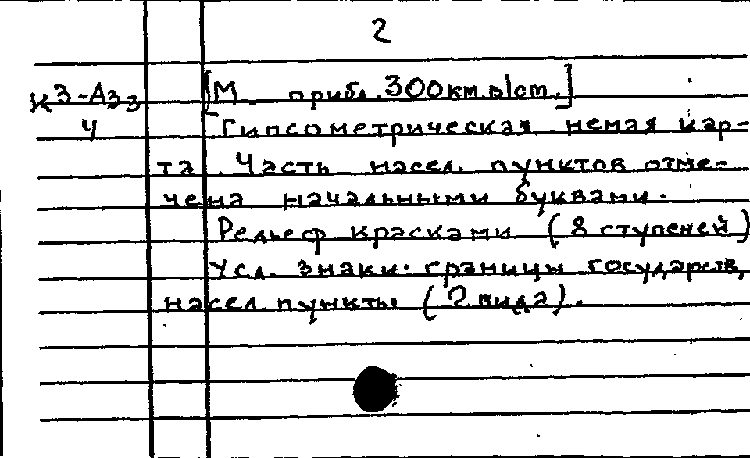 2
К3-Аз3 [М прибл. 300км. в 1 cm.]
4 Гипсометрическая немая кар-
та. Часть насел. пунктов отме-
чена начальными буквами.
Рельеф красками (8 ступеней)
Усл. знаки: границы государств,
насел. пункты (2 вида).